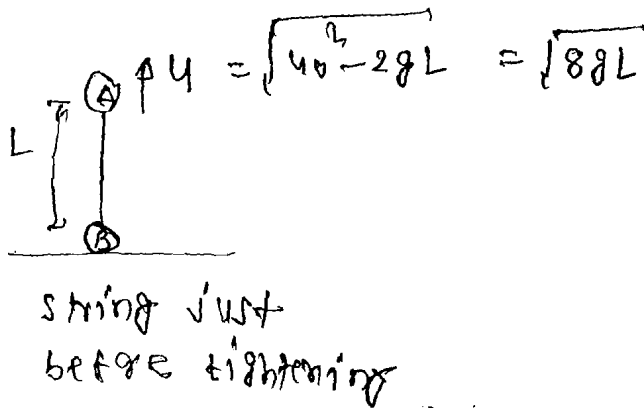 A ↑ u = √(u₀² - 2gL) = √8gL
L
B
string just
before tightening